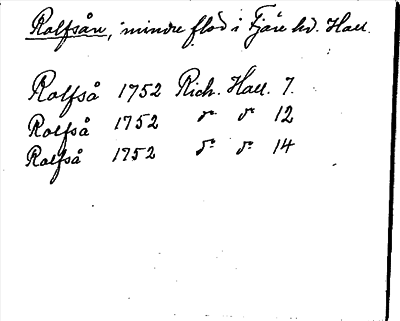 Rolfsån, mindre flod i Fjäre hd. Hall.
Rolfså 1752 Rich. Hall. 7.
Rolfså 1752 do do 12
Rolfså 1752 do do 14